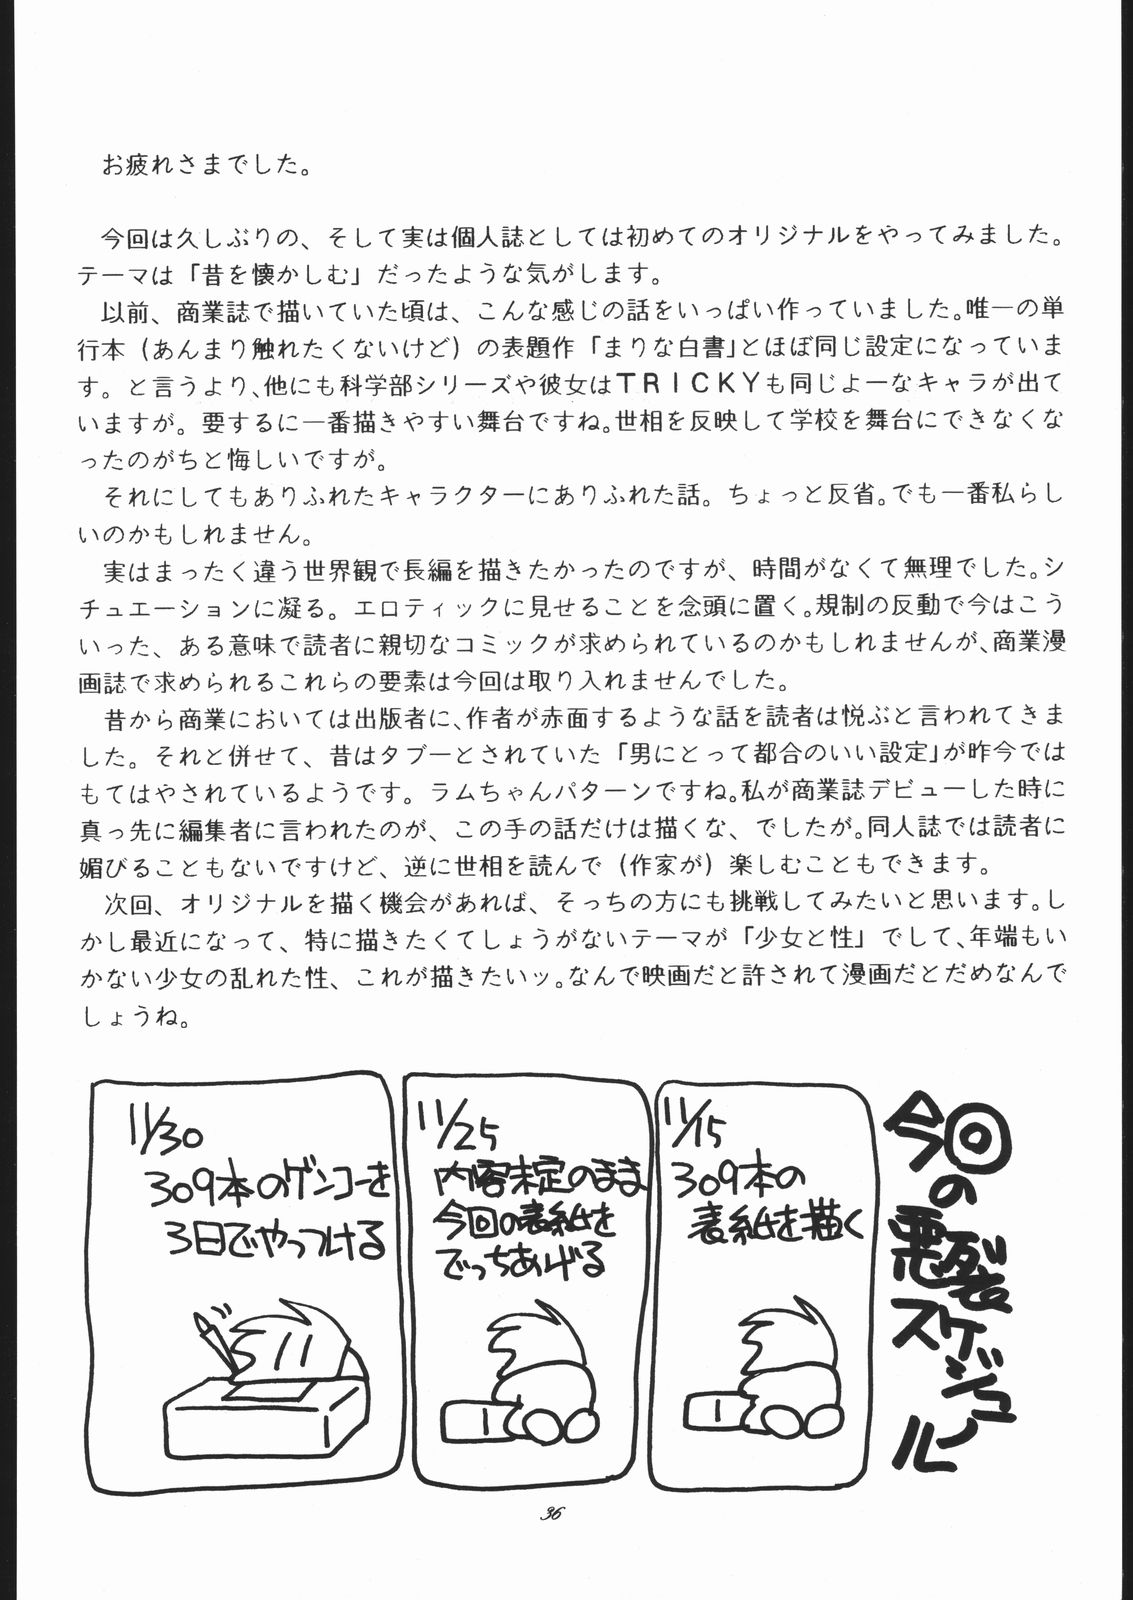 お疲れさまでした。
今回は久しぶりの、そして実は個人誌としては初めてのオリジナルをやってみました。
テーマは「昔を懐かしむ」だったような気がします。
以前、商業誌で描いていた頃は、こんな感じの話をいっぱい作っていました。唯一の単
行本（あんまり触れたくないけど）の表題作「まりな白書」とほぼ同じ設定になっていま
す。と言うより、他にも科学部シリーズや彼女はＴＲＩＣＫＹも同じよーなキャラが出て
いますが。要するに一番描きやすい舞台ですね。世相を反映して学校を舞台にできなくな
ったのがちと悔しいですが。
それにしてもありふれたキャラクターにありふれた話。ちょっと反省。でも一番私らし
いのかもしれません。
実はまったく違う世界観で長編を描きたかったのですが、時間がなくて無理でした。シ
チュエーションに凝る。エロティックに見せることを念頭に置く。規制の反動で今はこう
いった、ある意味で読者に親切なコミックが求められているのかもしれませんが、商業漫
画誌で求められるこれらの要素は今回は取り入れませんでした。
昔から商業においては出版者に、作者が赤面するような話を読者は悦ぶと言われてきま
した。それと併せて、昔はタブーとされていた「男にとって都合のいい設定」が昨今では
もてはやされているようです。ラムちゃんパターンですね。私が商業誌デビューした時に
真っ先に編集者に言われたのが、この手の話だけは描くな、でしたが。同人誌では読者に
媚びることもないですけど、逆に世相を読んで（作家が）楽しむこともできます。
次回、オリジナルを描く機会があれば、そっちの方にも挑戦してみたいと思います。し
かし最近になって、特に描きたくてしょうがないテーマが「少女と性」でして、年端もい
かない少女の乱れた性、これが描きたいッ。なんで映画だと許されて漫画だとだめなんで
しょうね。
今回の悪裂スケジュール
11/15
309本の
表紙を描く
11/25
内容未定のまま
今回の表紙を
でっちあげる
11/30
309本のゲンコーを
3日でやっつける
36